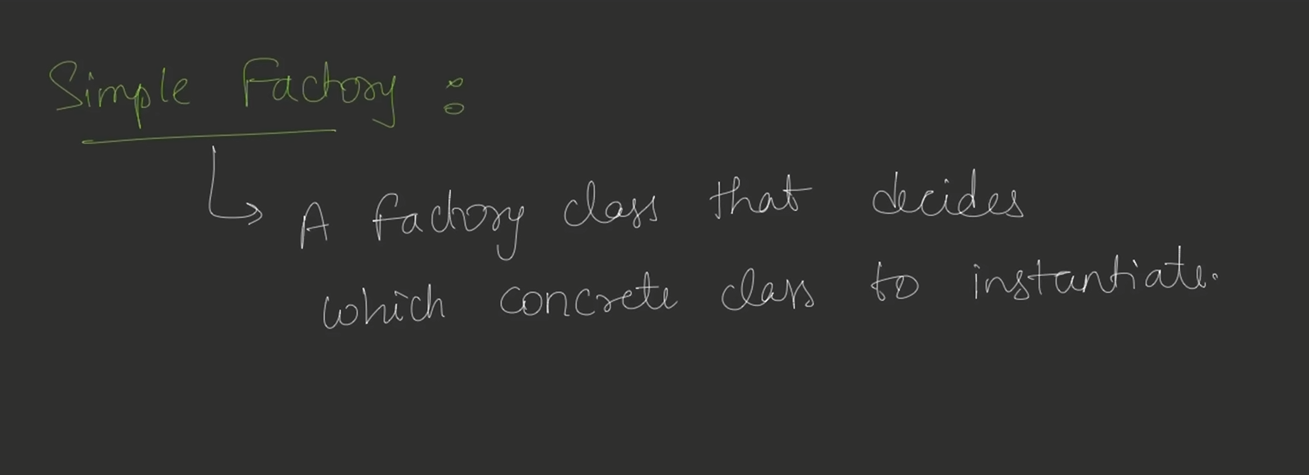 Simple Factory :
A factory class that decides
which concrete class to instantiate.